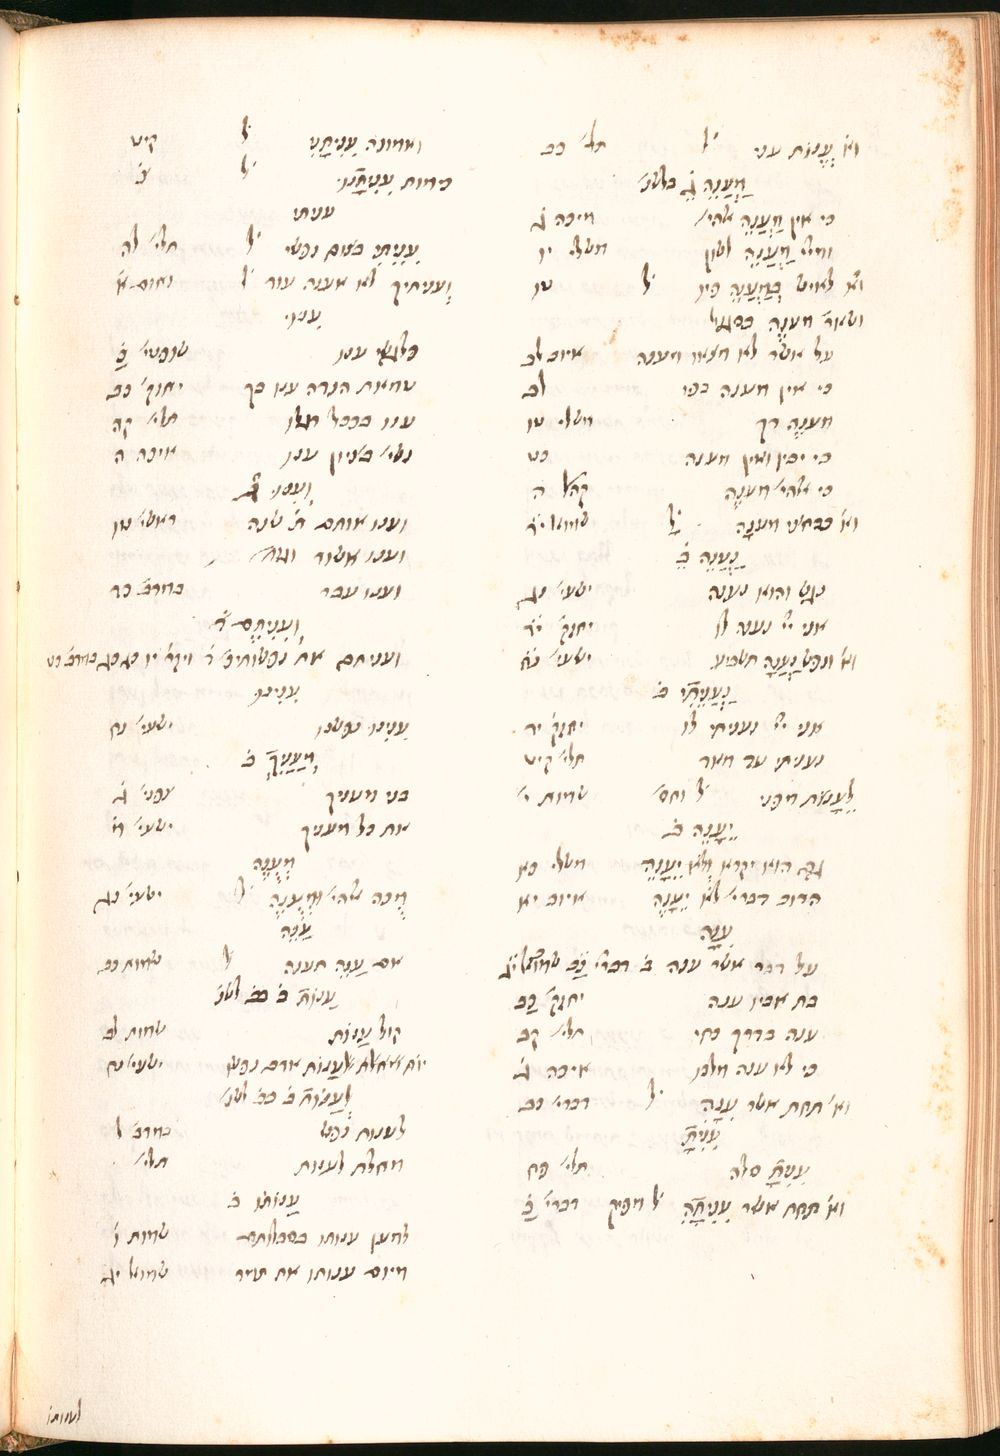 וא׳ עֱנוּת עני ל׳ תלי׳ כב
מַעֲנֵה ג̇ בלשנ׳
כי אין מַעֲנֵה אלהי׳ מיכה ג̇
מענה לשון משלי יו
וא׳ לאיש בְּמַעֲנֵה פיו ל׳ טו
ושאר׳ מענֶה בסגול
על אשר לא מצאו מענה איוב לב
כי אין מענה בפי לב
מענֶה רך משלי טו
כי יבין ואין מענה כט
כי אלהי׳ מענֶה קהל׳ ה
וא׳ כבחצי מענָה ל׳ שמואל יד
נַעֲנֵה ב̇
נגש והוא נענה ישעי׳ נג
אני יי׳ נענה לו יחזק׳ יד
וא׳ ונפש נַעֲנָה תשביע ישעי׳ נח
נַעֲנֵיתִי ב̇
אני יי׳ נעניתי לו יחזק׳ יד
נעניתי עד מאד תלי׳ קיט
לֵעָנוֹת מפני ל׳ וחס׳ שמות י׳
יֵעָנֶה ב̇
גם הוא יקרא ולא יֵעָנֶה משלי כא
הרוב דברי׳ לא יֵעָנֶה איוב יא
עִנָּה
על דבר אשר ענה ב̇ דברי׳ כב שמואל יג
בת אביו ענה יחזק׳ כב
ענה בדרך כחי תלי׳ קב
כי לא ענה מלבו איכה ג̇
וא׳ תחת אשר עִנָּהּ ל׳ דברי׳ כב
עִנִּיתָ
עִנִּיתָ סלה תלי׳ פח
וא׳ תחת אשר עִנִּיתָהּ ל׳ מפיק דברי׳ כ̇
ואמונה עִנִּיתָנִי ל׳ קיט
כימות עִנִּיתָנוּ ל׳ צ̇
עניתי
עִנֵּיתִי בצום נפשי ל׳ תלי׳ לה
וְעניתיך לא אענה עוד ל׳ נחום א̇
עִנּוּ
פלגשי ענו שופטי׳ כ̇
טמאת הנדה ענו בך יחזק׳ כב
ענו בכבל רגלו תלי׳ קה
נשי׳ בציון ענו איכה ה
וְעִנּוּ ג̇
וענו אותם ת׳ שנה ראשי׳ טו
וענו אשור
וענו עבר במדב׳ כד
וְעִנִּיתֶם ד̇
ועניתם את נפשותיכ׳ ד̇ ויקר׳ יו כג כג במדב׳ כט
עִנִּינוּ
עִנִּינוּ נפשנו ישעי׳ נח
מְעַנַּיִךְ ב̇
בני מעניך צפני׳ ג̇
את כל מעניך
מְעֻנֶּה
מֻכה אלהי׳ וּמְעֻנֶּה ל׳ ישעי׳ נג
עַנֵּה
אם עַנֵּה תענה ל׳ שמות כב
עַנּוֹת ב̇ בב׳ לשנ׳
קול עַנּוֹת שמות לב
יום עַנּוֹת אדם נפשו ישעי׳ נח
לְעַנּוֹת ב̇ בב׳ לשנ׳
לענות נפש במדב׳ ל
מחלת לענות תלי׳
עַנּוֹתוֹ ב̇
למען ענותו בסבלותם שמות ו׳
מיום ענותו את תמר שמואל יג
לענותו